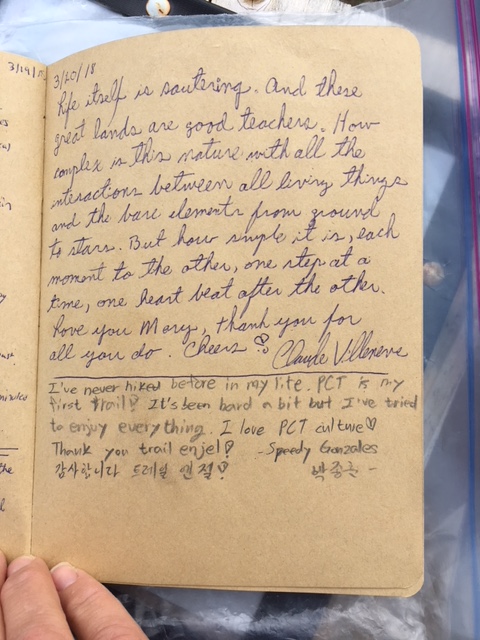 3/19/1
3/20/18
Life itself is sautering. And these
great lands are good teachers. How
complex is this nature with all the
interactions between all living things
and the bare elements from ground
to stars. But how simple it is, each
moment to the other, one step at a
time, one heart beat after the other.
Love you Mary, thank you for
all you do. Cheers Claude Villeneve
I've never hiked before in my life. PCT is my
first trail! It's been hard a bit but I've tried
to enjoy everything. I love PCT culture♡
Thank you trail enjel! -Speedy Gonzales
감사합니다 트레일 엔젤! 박종근 -